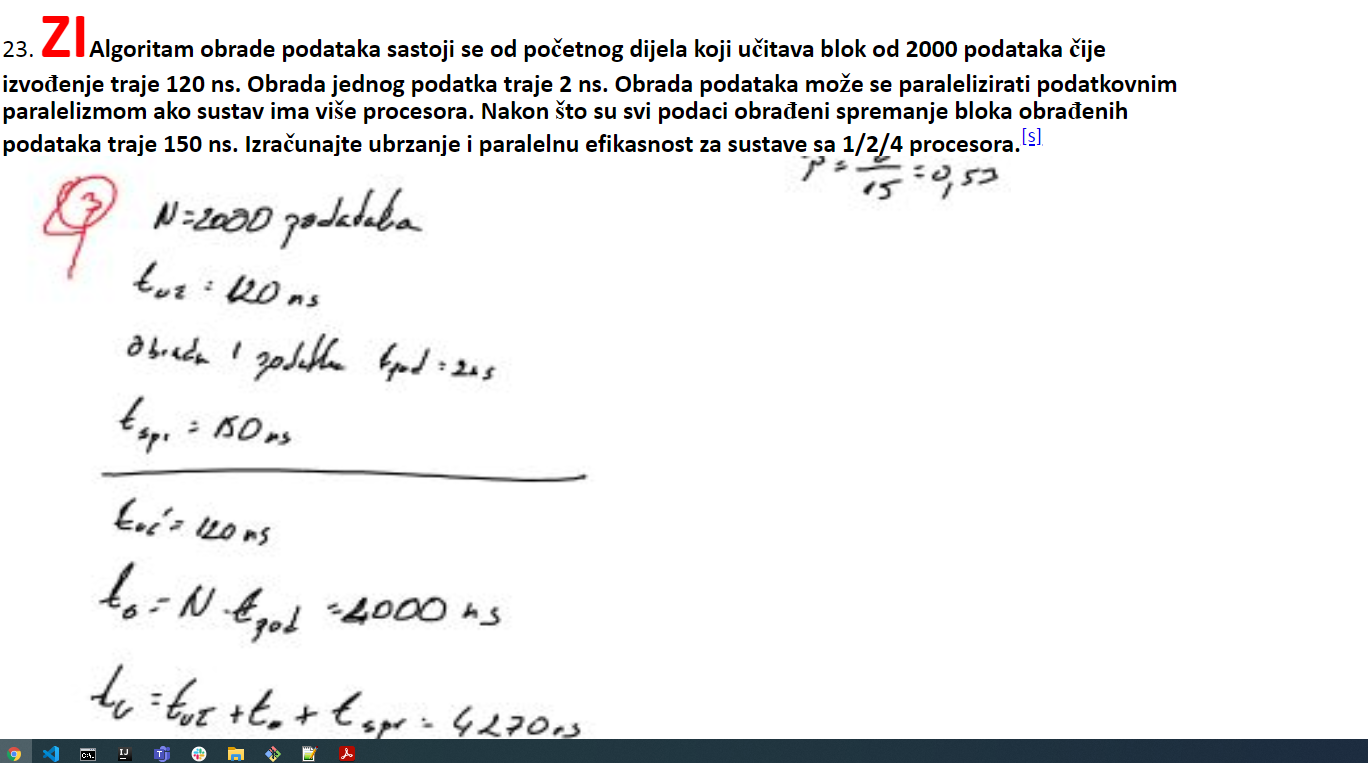 23. ZI Algoritam obrade podataka sastoji se od početnog dijela koji učitava blok od 2000 podataka čije
izvođenje traje 120 ns. Obrada jednog podatka traje 2 ns. Obrada podataka može se paralelizirati podatkovnim
paralelizmom ako sustav ima više procesora. Nakon što su svi podaci obrađeni spremanje bloka obrađenih
podataka traje 150 ns. Izračunajte ubrzanje i paralelnu efikasnost za sustave sa 1/2/4 procesora.[s]
P = 8/15 = 0,53
N = 2000 podataka
t uč = 120 ns
obrada 1 podatka t pod = 2ns
t spr = 150 ns
t uč = 120 ns
t o = N · t pod = 4000 ns
t u = t uč + t o + t spr = 4270 ns